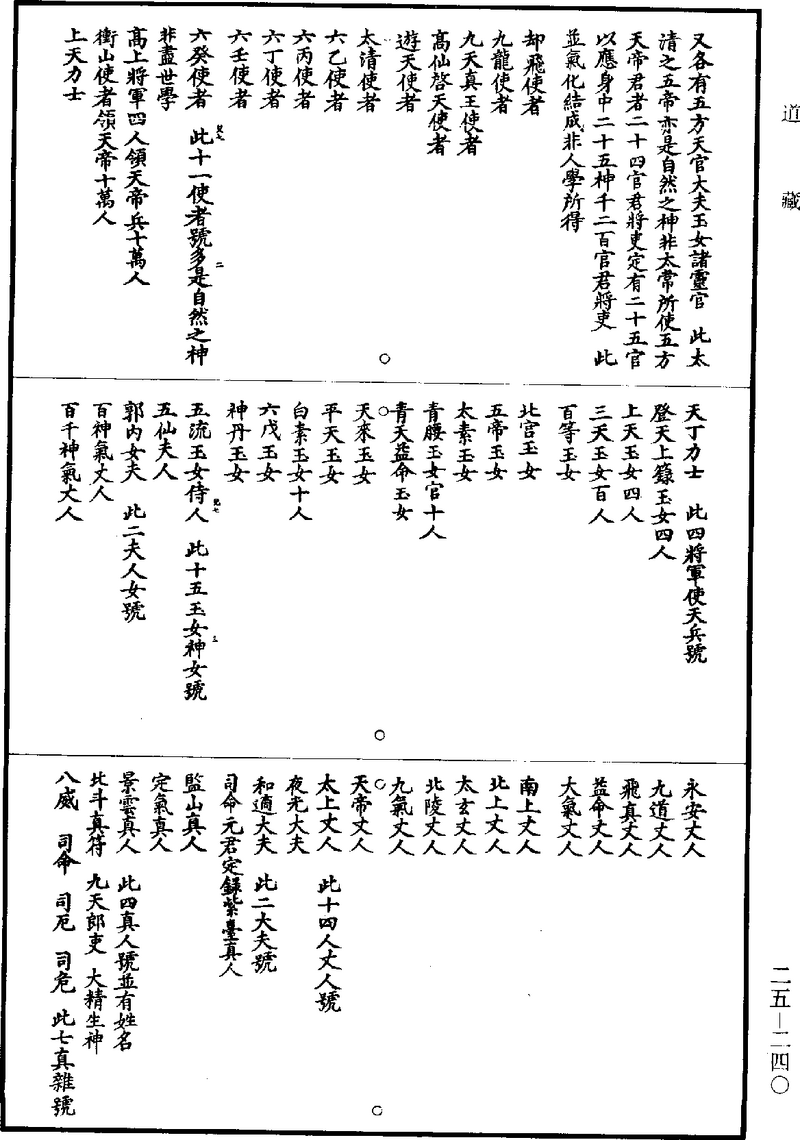 道藏
又各有五方天官大夫玉女諸靈官　此太
清之五帝亦是自然之神非太常所使五方
天帝君者二十四官君將吏定有二十五官
以應身中二十五神千二百官君將吏　此
並氣化結成非人學所得
却飛使者
九龍使者
九天真王使者
高仙啓天使者
遊天使者
太清使者
六乙使者
六丙使者
六丁使者
六壬使者
六癸使者　此十一使者號多是自然之神
二
非盡世學
高上將軍四人領天帝兵十萬人
衝山使者領天帝十萬人
上天力士
天丁力士　此四將軍使天兵號
登天上籙玉女四人
上天玉女四人
三天玉女百人
百等玉女
北宮玉女
五帝玉女
太素玉女
青腰玉女官十人
青天益命玉女
天來玉女
平天玉女
白素玉女十人
六戊玉女
神丹玉女
五流玉女侍人　此十五玉女神女號
三
五仙夫人
郭內女夫　此二夫人女號
百神氣丈人
百千神氣丈人
永安丈人
九道丈人
飛真丈人
益命丈人
大氣丈人
南上丈人
北上丈人
太玄丈人
北陵丈人
九氣丈人
天帝丈人
太上丈人　此十四人丈人號
夜光大夫
和適大夫　此二大夫號
司命元君定錄紫臺真人
監山真人
定氣真人
景雲真人　此四真人號並有姓名
北斗真符　九天郎吏　大精生神
八威　司命　司厄　司危　此七真雜號
二五—二四〇